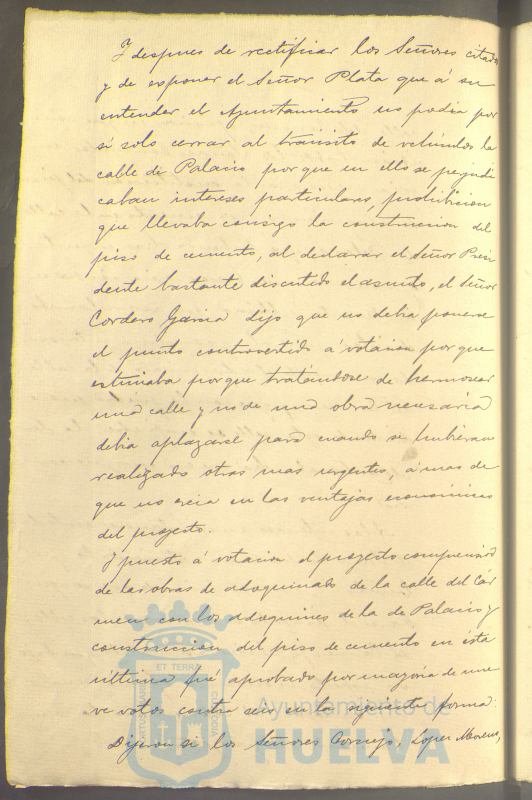 Y despues de rectificar los Señores citados
y de exponer el Señor Plata que á su
entender el Ayuntamiento no podia por
si solo cerrar al tránsito de vehículos la
calle de Palacio porque en ello se perjudi
caban intereses particulares, prohibicion
que llevaba consigo la construccion del
piso de cemento, al declarar el Señor Presi
dente bastante discutido el asunto, el Señor
Cordero Garcia dijo que no debia ponerse
el punto controvertido á votacion porque
estimaba porque tratándose de hermosear
una calle y no de una obra necesaria
debia aplazarse para cuando se hubieran
realizado otras mas urgentes, á mas de
que no creia en las ventajas económicas
del proyecto.
Y puesto á votacion el proyecto comprensivo
de las obras de adoquinado de la calle del Cár
men con los adoquines de la de Palacio y
construccion del piso de cemento en ésta
última fué aprobado por mayoria de nue
ve votos contra seis en la siguiente forma:
Dijeron si los Señores Cornejo, López Moreno,
ET TERRÆ
Ayuntamiento de
HUELVA